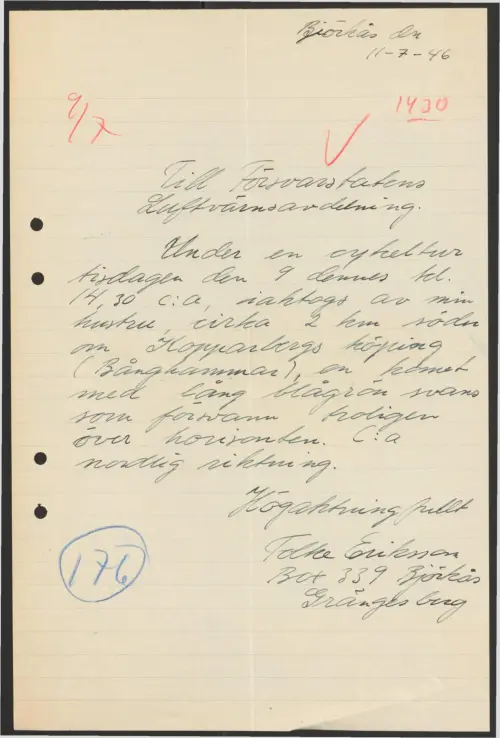 Björkås den
11-7-46
9/7
1430
Till Försvarstabens
Luftvärnsavdelning.
Under en cykeltur
tisdagen den 9 dennes kl.
14,30 c:a, iakttogs av min
hustru, cirka 2 km söder
om Kopparbergs köping
(Bånghammar), en komet
med lång blågrön svans
som försvann troligen
över horisonten. C:a
nordlig riktning.
Högaktningsfullt
Folke Eriksson
Box 339 Björkås
Grängesberg
176